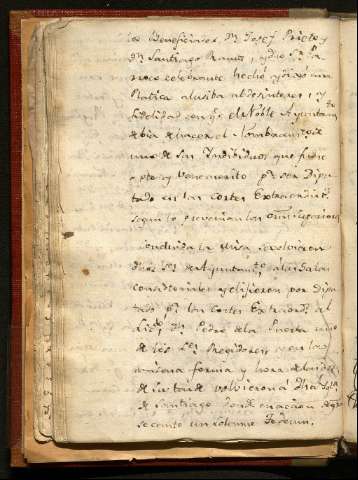 los Beneficiados Dn Josef Prieto y
Dn Santiago Ramos, y dho Sr Pa
rroco celebrante hechó y dijo una
Platica alusiba al desinteres, y
fidelidad con qe el Noble Ayuntamto
debia de hacer el nombramto de
uno de sus Individuos que fuese
apto y benemerito pa ser Dipu
tado en las Cortes Extraordins
segun lo prevenian las
Concluida la Misa, se volvieron
dhos Sres de Ayuntamto a las Salas
consistoriales y eligieron por Dipu
tado pa las Cortes Extraords al
Licdo Dn Pedro de la Puerta uno
de los Sres Regidores, y en la
misma forma y hora de las
de la tarde volvieron á dha Yglª
de Santiago donde en accion de gra
se cantó un solemne Tedeum.